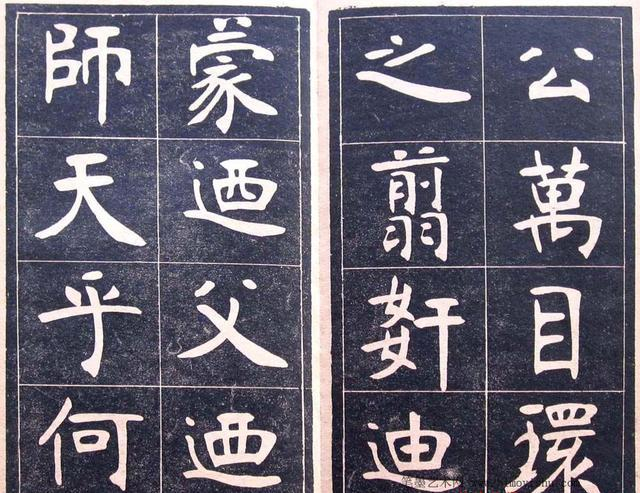 公萬目環
之翦奸迪
蒙迺父迺
師天乎何
笔墨艺术网 www.bimoyishu.com